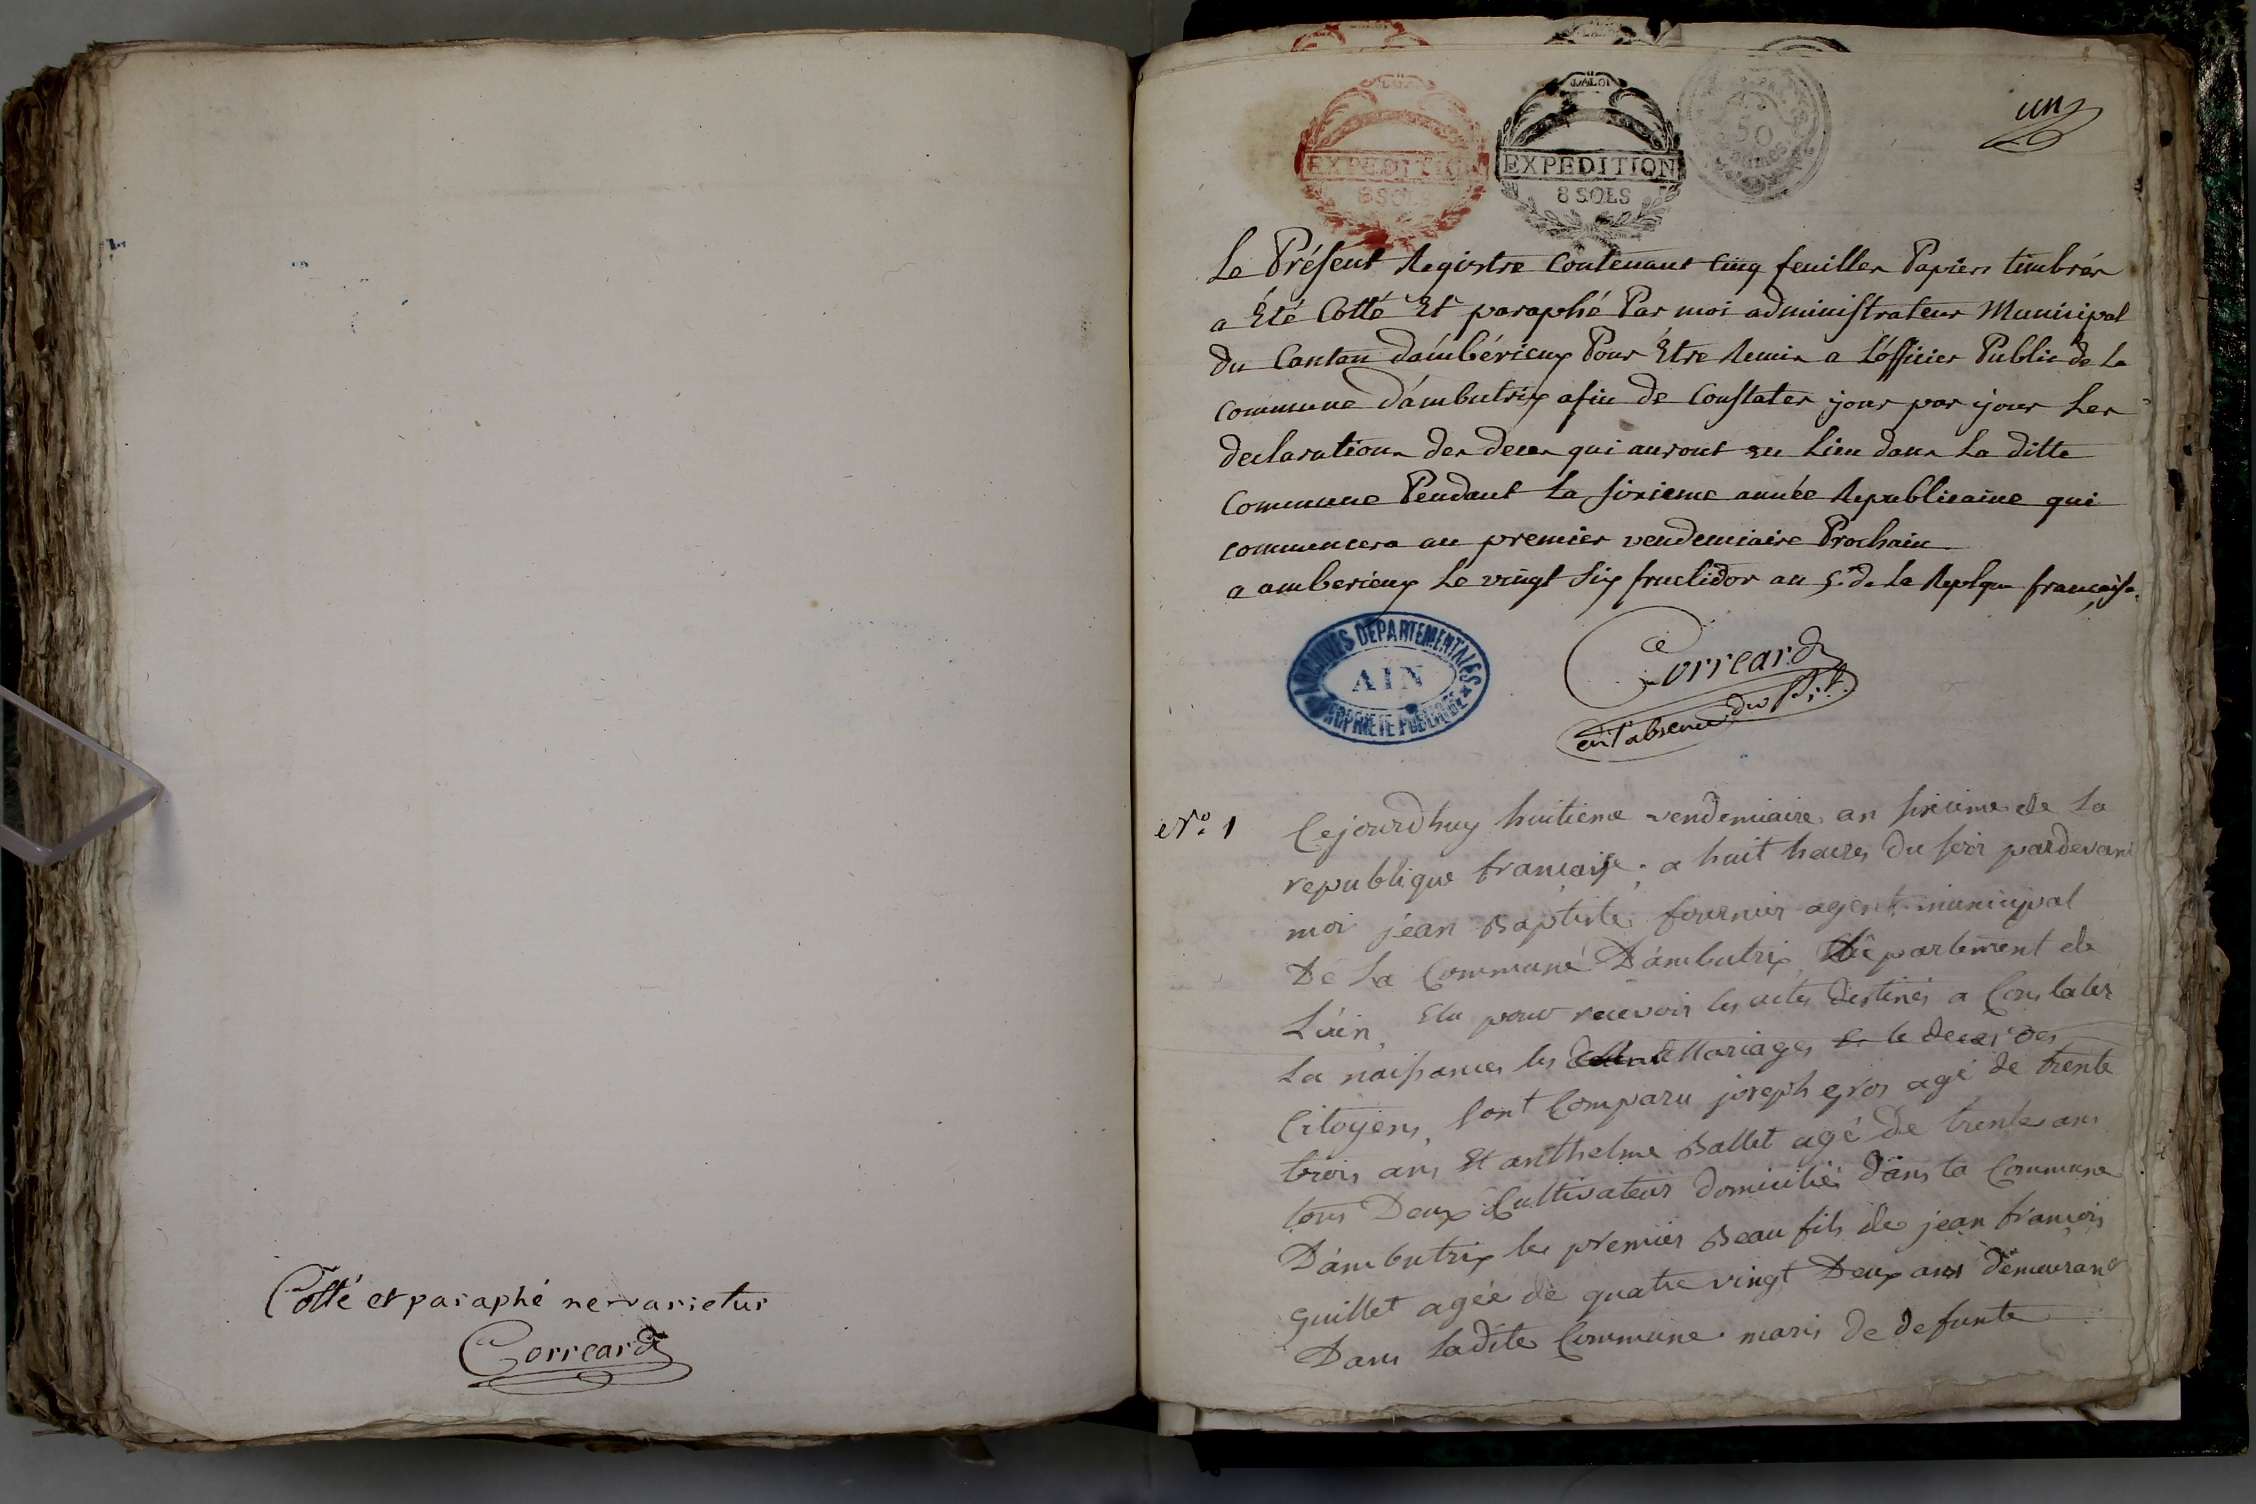 Cotté et paraphé ne varietur
Correard
un
LA LOI
EXPEDITION
8 SOLS
LA LOI
EXPEDITION
8 SOLS
50
Le Présent Registre Contenant Cinq feuilles Papiers timbrés
a Été Cotté Et paraphé Par moi administrateur Municipal
du Canton d'ambérieux Pour Être Remis a L'officier Public de La
Commune d'ambutrix afin de Constater jour par jour Les
declarations des deces qui auront eu Lieu dans La ditte
Commune Pendant La sixieme année Republicaine qui
commencera au premier vendemiaire Prochain
a amberieux Le vingt Six fructidor an 5.e de La Replque française.
Correard
en l'absence du
ARCHIVES DEPARTEMENTALES
AIN
PROPRIETE PUBLIQUE
N.o 1
Cejourdhuy huitieme vendemiaire an sixieme de La
republique française a huit heures du soir pardevant
moi jean Baptiste fournier agent municipal
De La Commune D'ambutrix Departement de
L'ain, Elu pour recevoir les actes destinés a Constater
La naissances les Mariages Et le deces des
Citoyens, sont Comparu joseph gros agé de trente
trois ans Et anthelme Ballet agé de trente ans
tous Deux Cultivateur domicilié dans la Commune
D'ambutrix le premier Beau fils de jean francois
guillet agée de quatre vingt Deux ans demeurant
Dans Ladite Commune maris de defunte